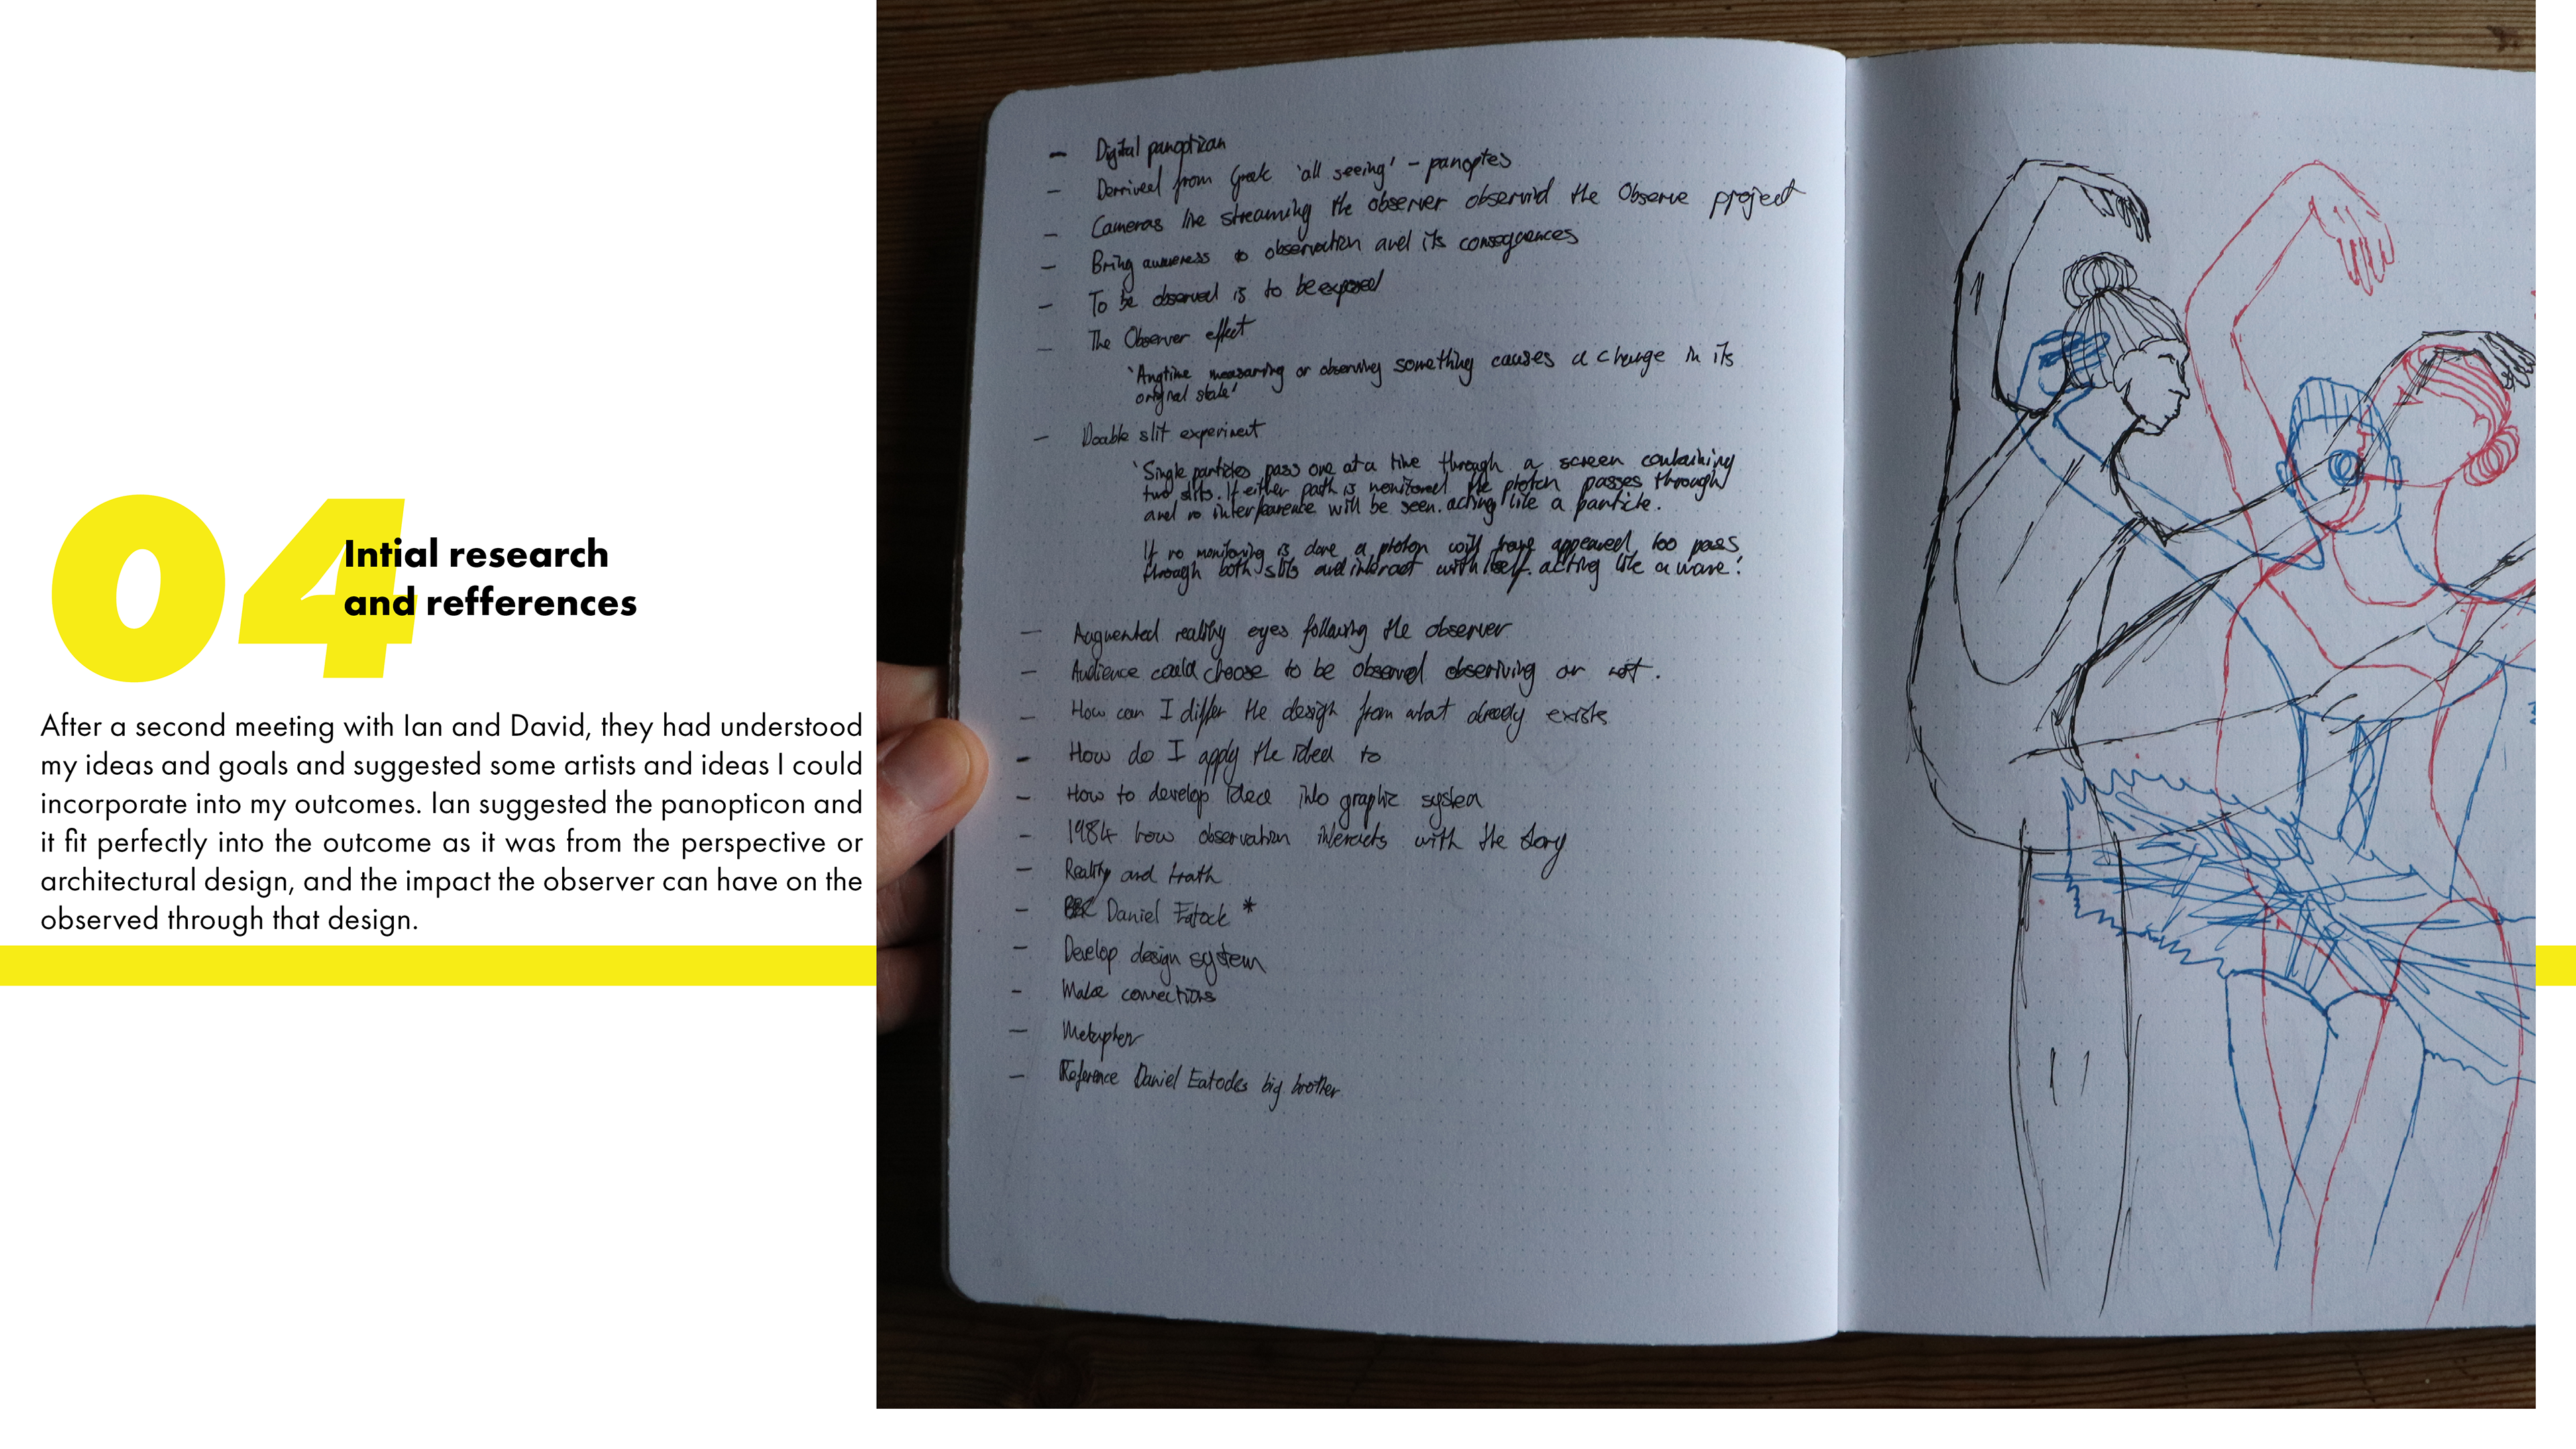 04
Intial research
and refferences
After a second meeting with Ian and David, they had understood
my ideas and goals and suggested some artists and ideas I could
incorporate into my outcomes. Ian suggested the panopticon and
it fit perfectly into the outcome as it was from the perspective or
architectural design, and the impact the observer can have on the
observed through that design.
– Digital panoptican
– Derriveed from Greek 'all seeing' – panoptes
– Cameras live streaming the observer observind the Observe project
– Bring awareness to observation and its consequences
– To be observed is to be exposed
– The Observer effect
'Anytime measuring or observing something causes a change in its
original state'
– Double slit experiment
'Single particles pass one at a time through a screen containing
two slits. If either path is monitored the photon passes through
and no interfearence will be seen. acting like a particle.
If no monitoring is done a photon will have appeared too pass
through both slits and interact with itself. acting like a wave.'
– Augmented reality eyes following the observer
– Audience could choose to be observed observing or not.
– How can I differ the design from what already exists
– How do I apply the idea to
– How to develop idea into graphic system
– 1984 how observation interacts with the story
– Reality and truth
– Daniel Eatock *
– Develop design system
– Make connections
– Metaphor
– Reference Daniel Eatocks big brother